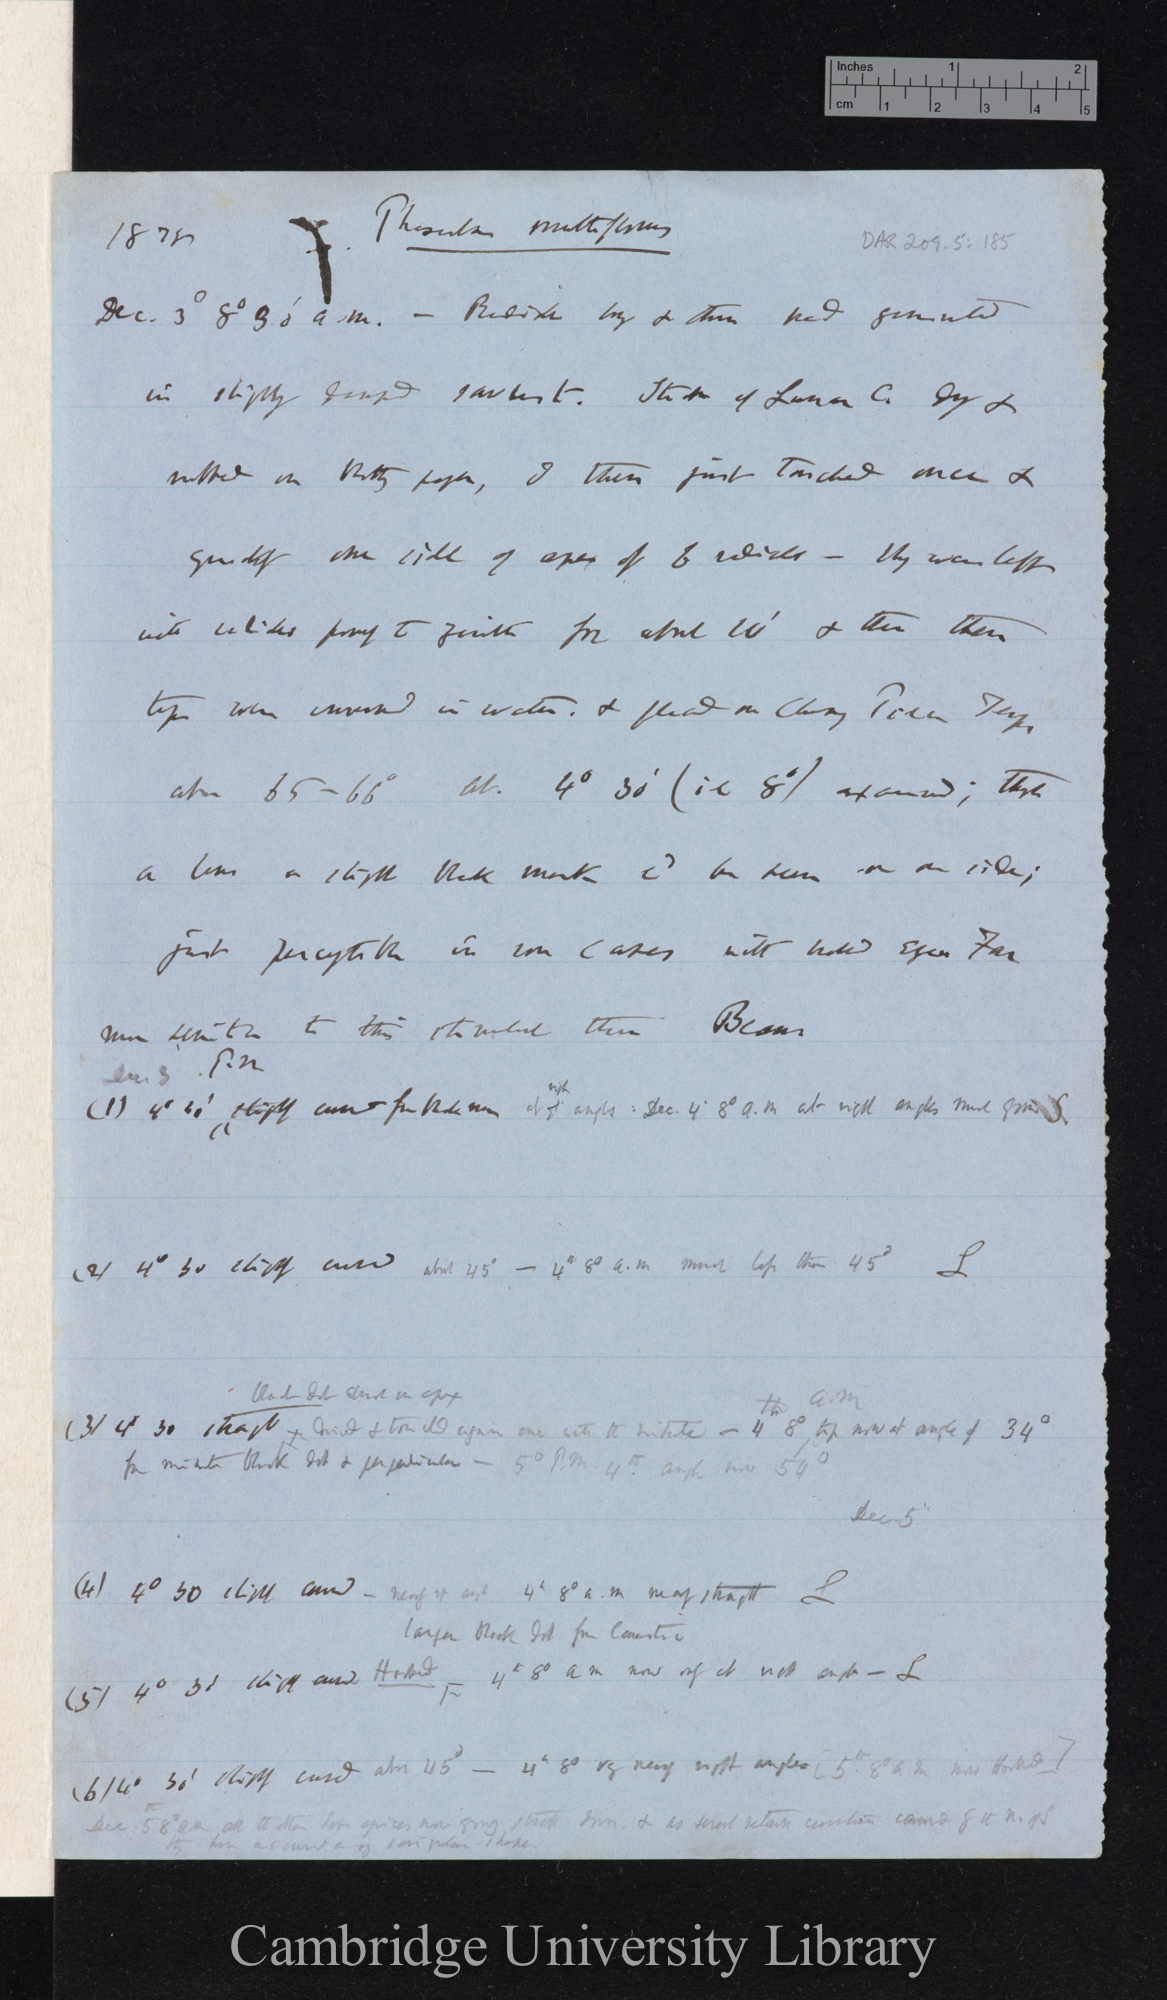 Inches 1 2
cm 1 2 3 4 5
1878 Phaseolus multiflorus DAR 209.5: 185
Dec. 3° 8° 30' a.m. — Radicles long & thin had germinated
in slightly damp sawdust. Stick of Lunar C. dry &
rubbed on blotting paper, I then just touched once &
gently one side of apex of 6 radicles — they were left
with radicles pointing to zenith for about 10' & then their
tips were immersed in water. & placed on Chimney Piece Temp.
about 65–66° At. 4° 30' (ie 8°) examined; through
a lens a slight black mark cd be seen on one side;
just perceptible in some cases with naked eye Far
more sensitive to this stimulus than Beans
Dec. 3 P.m
(1) 4° 30' slightly curved from black mark at right angles : Dec. 4 8° a.m at right angles
(2) 4° 30 slightly curved about 45° — 4th 8° a.m much less than 45° L
black dot shown on apex
(3) 4° 30 straight dried & touched again once with the nitrate — 4th 8° a.m tip now at angle of 34°
from minute black dot & perpendicular — 5° P.M. 4th angle now 54°
Dec. 5
(4) 4° 30 slightly curved — nearly rt angle 4th 8° a.m nearly straight L
larger black dot from Caustic
(5) 4° 30' slightly curved Hooked — 4th 8° a m now only at right angle — L
(6) 4° 30' slightly curved about 45° — 4th 8° very nearly right angles [5th 8° a m now Hooked]
Dec. 5th 8° a.m all the others have apices now going straight down & as